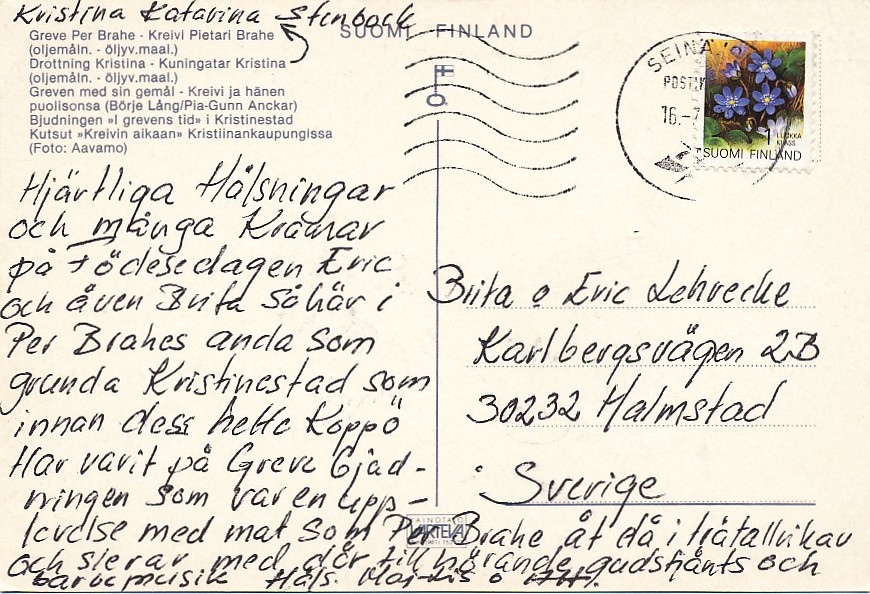 Kristina Katarina Stenbock
SUOMI FINLAND
Greve Per Brahe - Kreivi Pietari Brahe
(oljemåln. - öljyv.maal.)
Drottning Kristina - Kuningatar Kristina
(oljemåln. - öljyv.maal.)
Greven med sin gemål - Kreivi ja hänen
puolisonsa (Börje Lång/Pia-Gunn Anckar)
Bjudningen »I grevens tid» i Kristinestad
Kutsut »Kreivin aikaan» Kristiinankaupungissa
(Foto: Aavamo)
SEINÄ
POST
16.-7
1 LUOKKA
KLASS
SUOMI FINLAND
Hjärtliga Hälsningar
och många Kramar
på Födesedagen Eric
och även Brita så här i
Per Brahes anda som
grunda Kristinestad som
innan dess hette Koppö
Har varit på Greve Bjud-
ningen som var en upp-
levelse med mat som Per Brahe åt då i trätallrikar
och slevar med där till hörande gudstjänts och
barockmusik Häls. Maj-Lis o
Brita o Eric Lehrecke
Karlbergsvägen 2B
30232 Halmstad
Sverige
AINOTAIDE
ARTELA